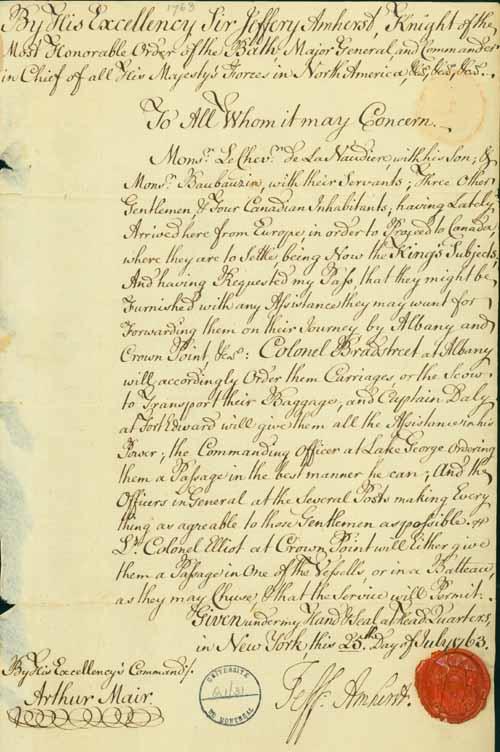 1763
By His Excellency Sir Jeffery Amherst, Knight of the
Most Honorable Order of the Bath, Major General, and Commander
in Chief of all His Majesty's Forces, in North America, &ca, &ca, &ca.
To All Whom it may Concern.
Monsr. Le Chevr. de La Naudiere, with his Son; &
Monsr. Baubauzin, with their Servants; Three Other
Gentlemen, & Four Canadian Inhabitants; having Lately
Arrived here from Europe, in order to Proceed to Canada,
where they are to Settle, being Now the King's Subjects,
And having Requested my Pass that they might be
Furnished with any Assistance they may want for
Forwarding them on their Journey by Albany and
Crown Point, &ca: Colonel Bradstreet at Albany
will accordingly Order them Carriages, or the Scow
to Transport their Baggage; and Captain Daly
at Fort Edward will give them all the Assistance in his
Power; the Commanding Officer at Lake George Ordering
them a Passage in the best manner he can; And the
Officers in General at the Several Posts making Every
thing as agreable to those Gentlemen as possible.
Lt. Colonel Elliot at Crown Point will Either give
them a Passage in One of the Vessells, or in a Batteau
as they may Chuse, & that the Service will Permit.
Given under my Hand & Seal at Head Quarters,
in New York this 25th. Day of July 1763.
By His Excellency's Command.
Arthur Mair.
Jeff. Amherst.
UNIVERSITE
DE MONTREAL